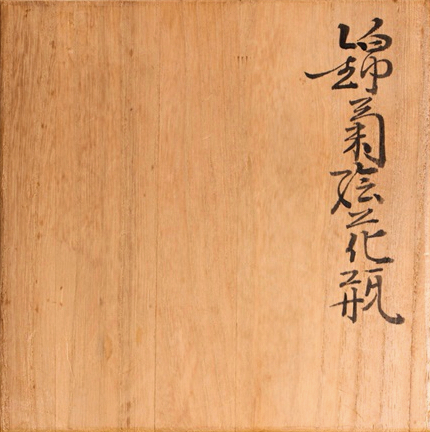 錦菊絵花瓶